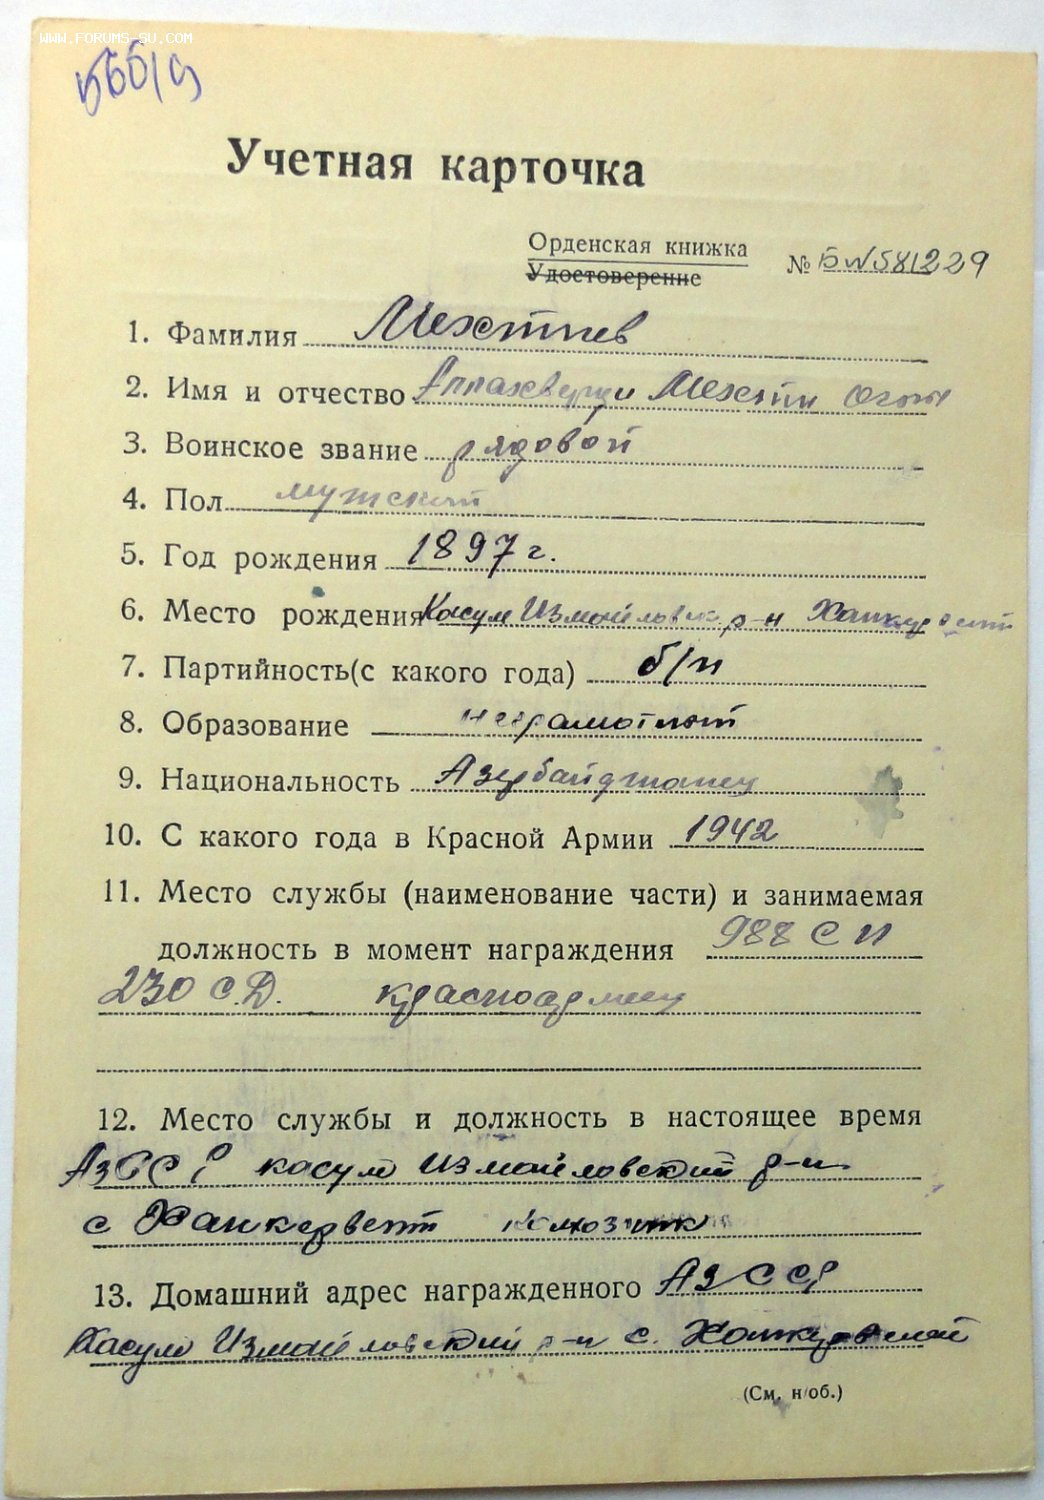 WWW.FORUMS-SU.COM
Учетная карточка
Орденская книжка
Удостоверение
№ Б № 581229
1. Фамилия Мехтиев
2. Имя и отчество Аллахверди Мехти оглы
3. Воинское звание рядовой
4. Пол мужской
5. Год рождения 1897 г.
6. Место рождения Касум Измайловск р-н
7. Партийность(с какого года) б/п
8. Образование неграмотный
9. Национальность Азербайджанец
10. С какого года в Красной Армии 1942
11. Место службы (наименование части) и занимаемая
должность в момент награждения 988 СП
230 С.Д. красноармеец
12. Место службы и должность в настоящее время
АзССР касум Измайловский р-н
с Ханкервент колхозник
13. Домашний адрес награжденного АЗССР
Касум Измайловский р-н с.
(См. н/об.)